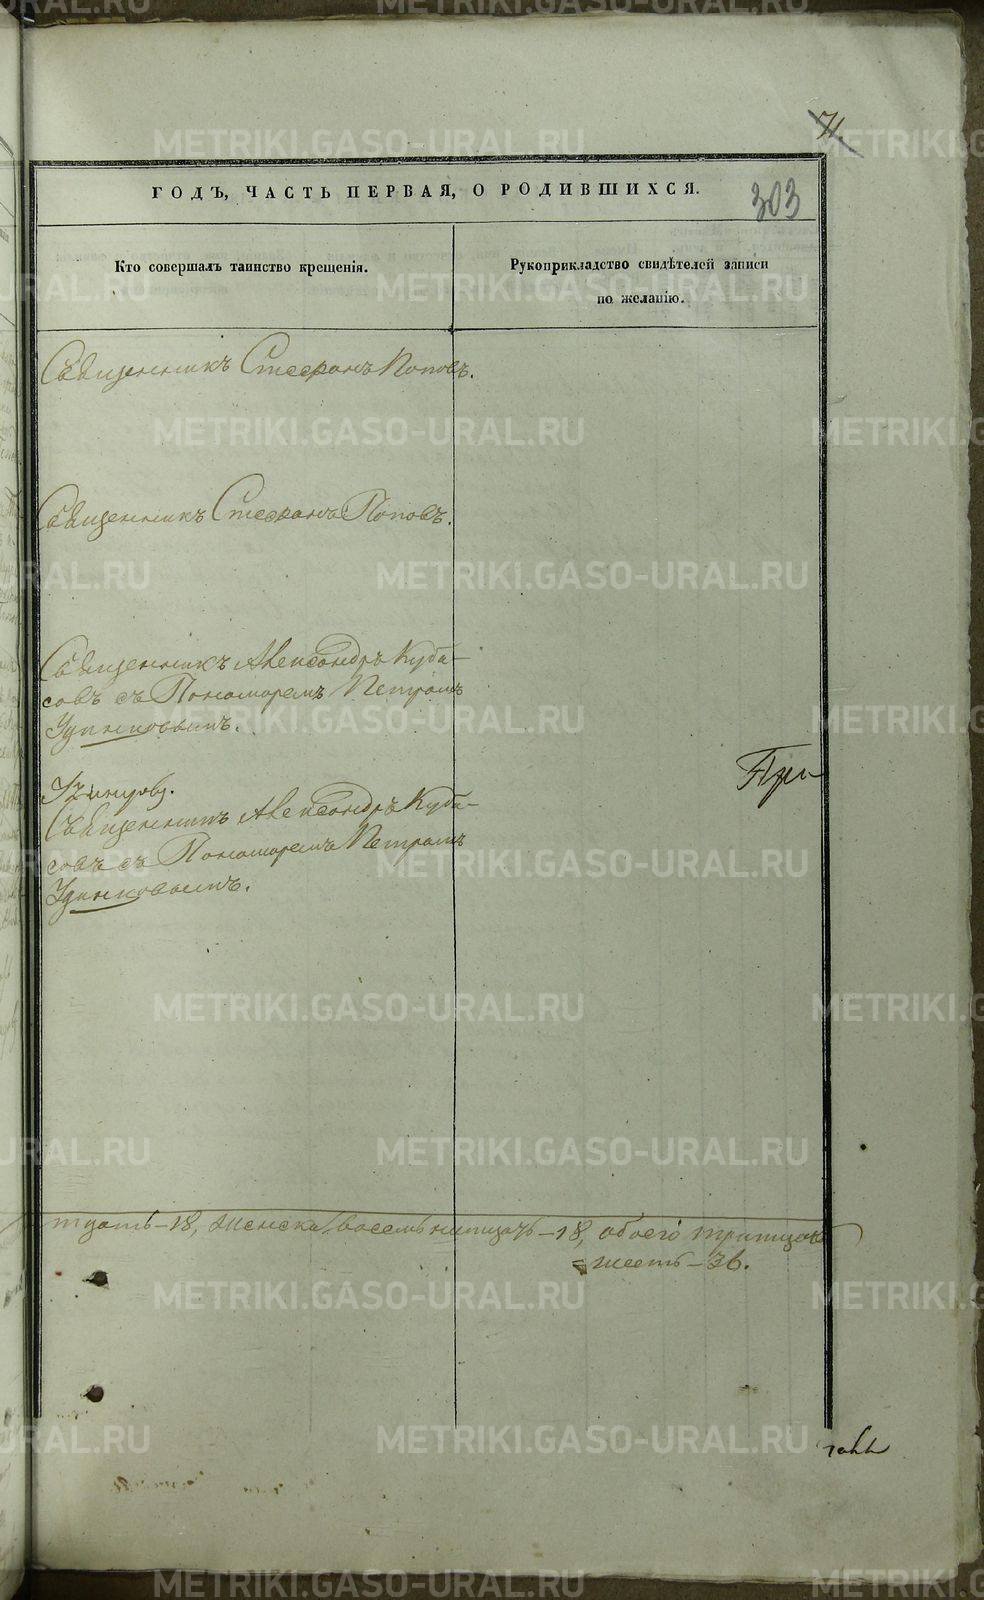 71.
ГОДЪ, ЧАСТЬ ПЕРВАЯ, О РОДИВШИХСЯ.
303
Кто совершалъ таинство крещенія.
Рукоприкладство свидѣтелей записи
по желанію.
Священникъ Стефанъ Поповъ.
Священникъ Стефанъ Поповъ.
Священникъ Александръ Куба-
совъ съ Пономаремъ Петромъ
Удинковымъ.
При-
Священникъ Александръ Куба-
совъ съ Пономаремъ Петромъ
Удинковымъ.
тцать-18, женска восемнатцать-18, обоего тритцать
шесть-36.
METRIKI.GASO-URAL.RU